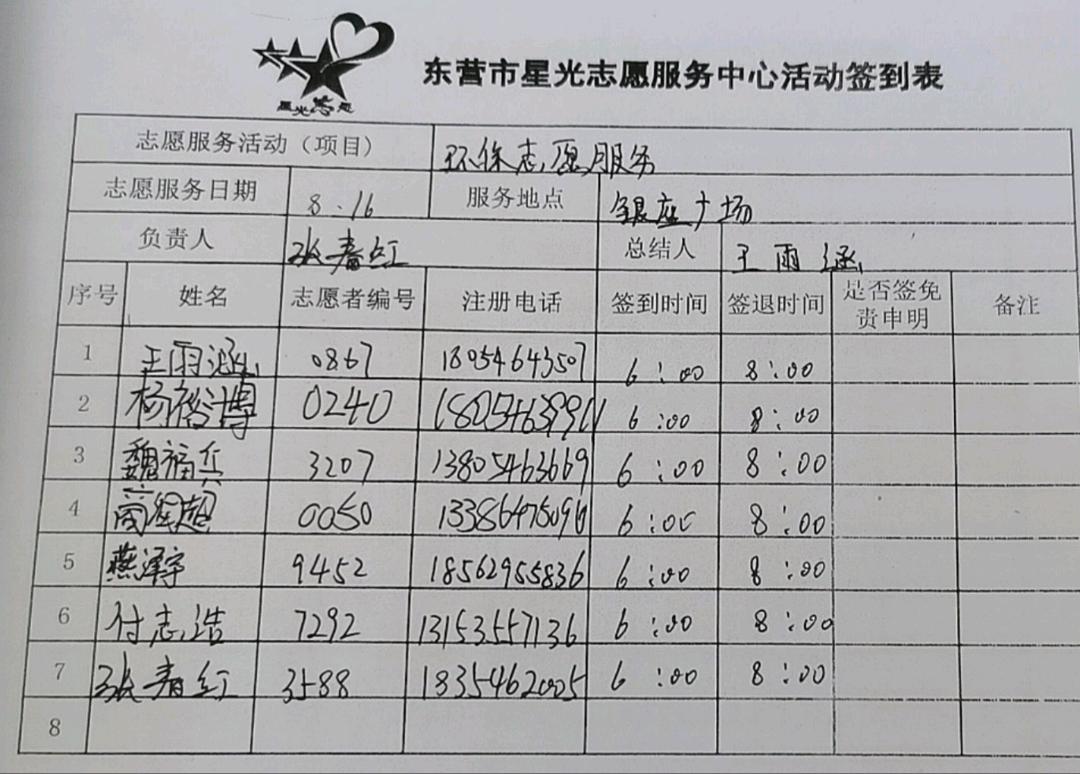 星光志愿
东营市星光志愿服务中心活动签到表
志愿服务活动（项目） 环保志愿服务
志愿服务日期 8.16 服务地点 银座广场
负责人 张春红 总结人 王雨涵
序号 姓名 志愿者编号 注册电话 签到时间 签退时间 是否签免责申明 备注
1 王雨涵 0867 18954643507 6:00 8:00
2 杨裕博 0240 6:00 8:00
3 魏福兵 3207 13805463669 6:00 8:00
4 0050 6:00 8:00
5 燕泽宇 9452 18562955836 6:00 8:00
6 付志浩 7292 13153557136 6:00 8:00
7 张春红 3588 1835462005 6:00 8:00
8